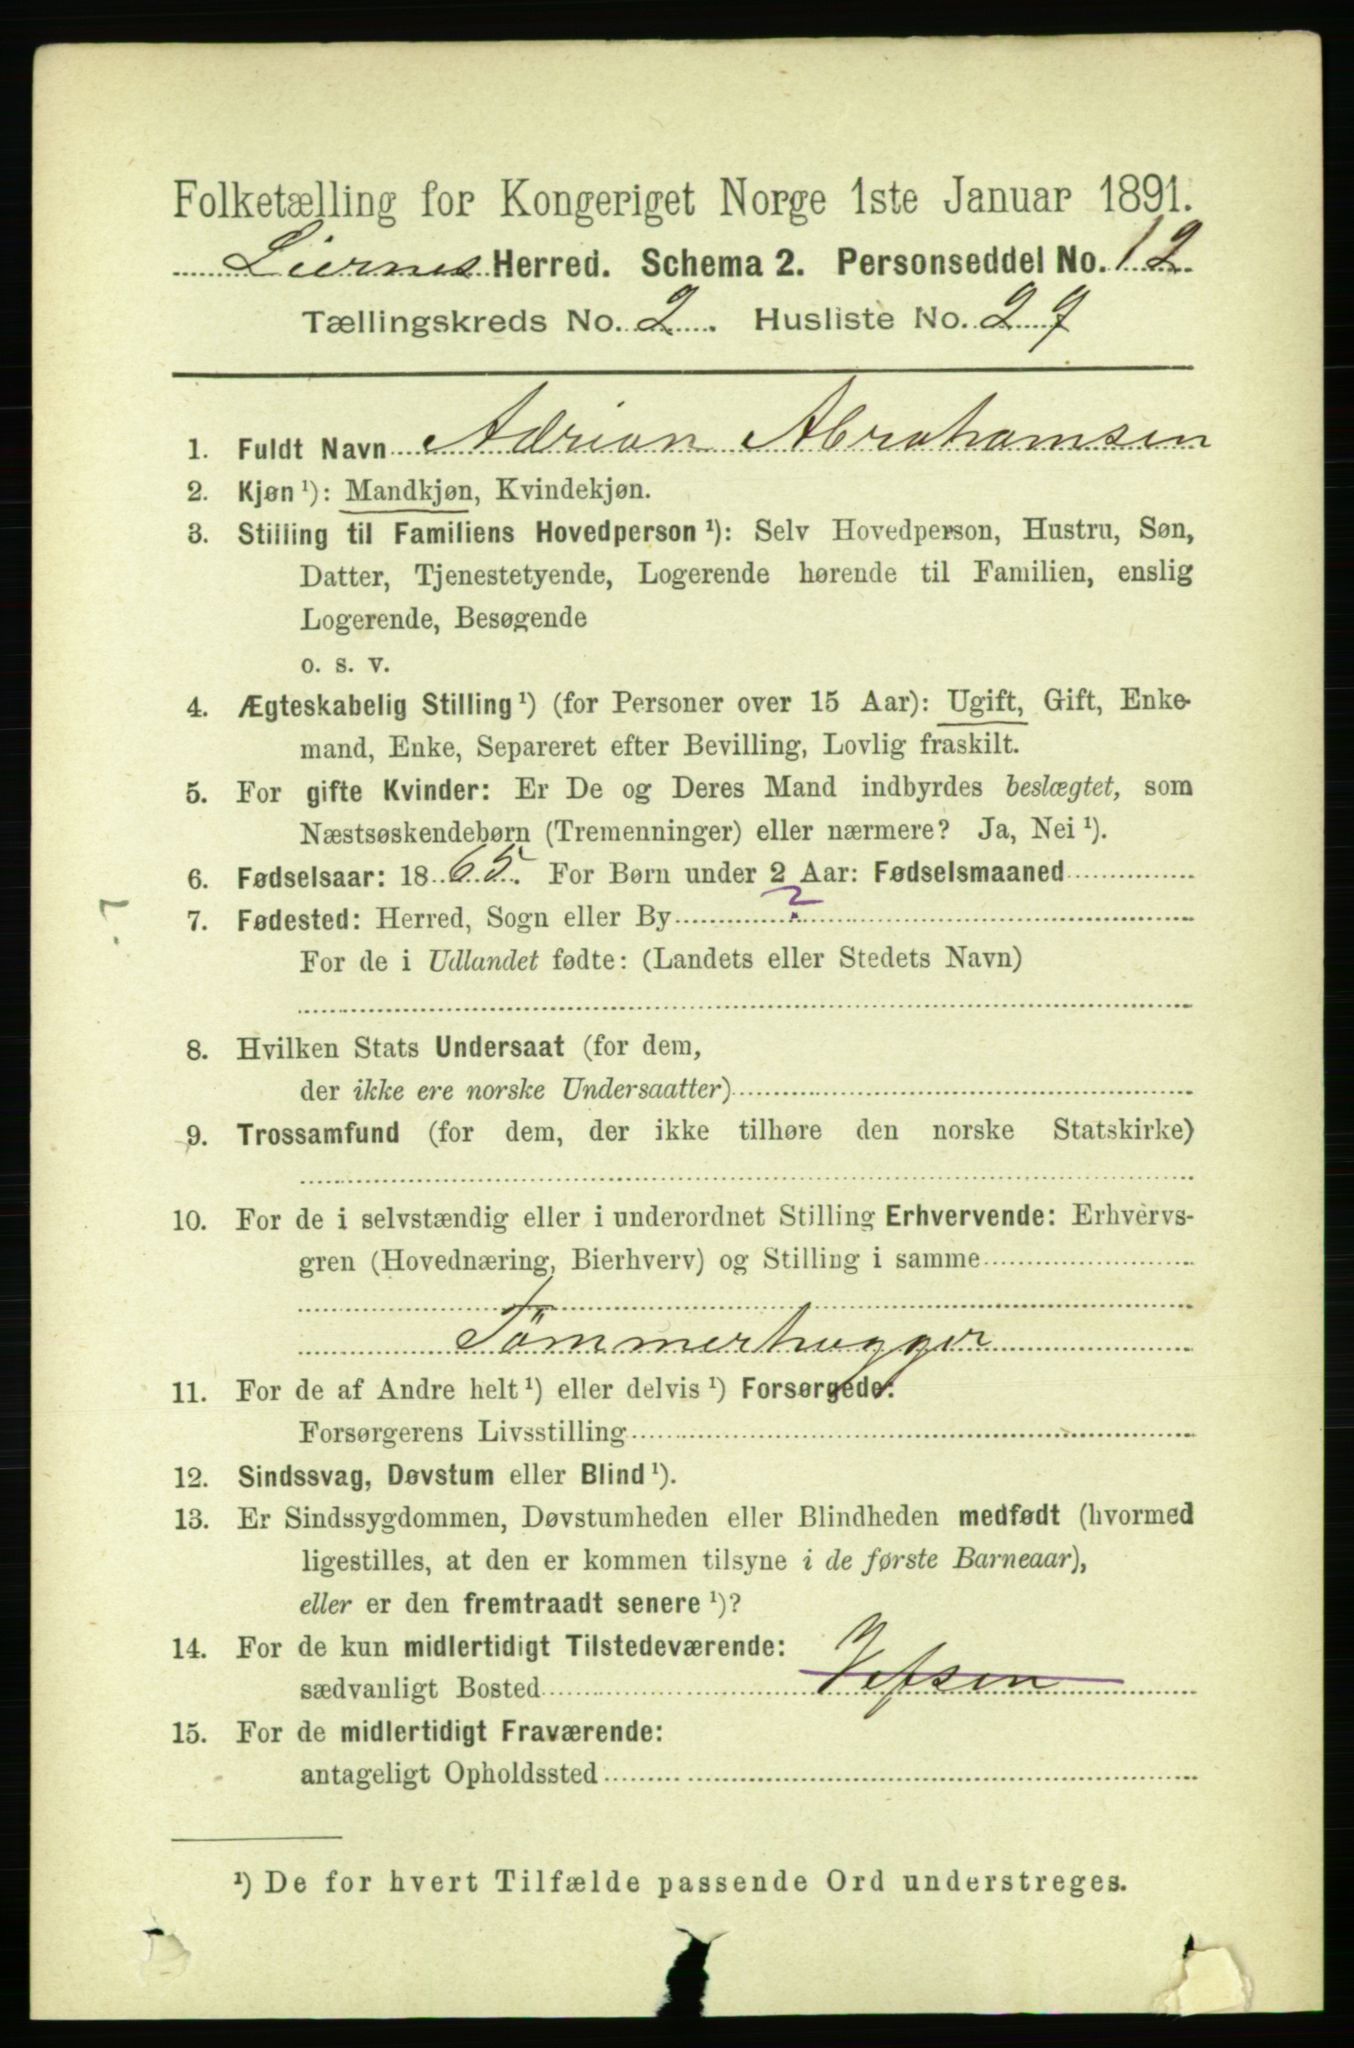 Folketælling for Kongeriget Norge 1ste Januar 1891.
Liernes Herred. Schema 2. Personseddel No. 12
Tællingskreds No. 2. Husliste No. 27
1. Fuldt Navn Adrian Abrahamsen
2. Kjøn ¹): Mandkjøn, Kvindekjøn.
3. Stilling til Familiens Hovedperson ¹): Selv Hovedperson, Hustru, Søn,
Datter, Tjenestetyende, Logerende hørende til Familien, enslig
Logerende, Besøgende
o. s. v.
4. Ægteskabelig Stilling ¹) (for Personer over 15 Aar): Ugift, Gift, Enke-
mand, Enke, Separeret efter Bevilling, Lovlig fraskilt.
5. For gifte Kvinder: Er De og Deres Mand indbyrdes beslægtet, som
Næstsøskendebørn (Tremenninger) eller nærmere? Ja, Nei ¹).
6. Fødselsaar: 1865. For Børn under 2 Aar: Fødselsmaaned
7. Fødested: Herred, Sogn eller By ?
?
For de i Udlandet fødte: (Landets eller Stedets Navn)
8. Hvilken Stats Undersaat (for dem,
der ikke ere norske Undersaatter)
9. Trossamfund (for dem, der ikke tilhøre den norske Statskirke)
10. For de i selvstændig eller i underordnet Stilling Erhvervende: Erhvervs-
gren (Hovednæring, Bierhverv) og Stilling i samme
Tömmerhugger
11. For de af Andre helt ¹) eller delvis ¹) Forsørgede:
Forsørgerens Livsstilling
12. Sindssvag, Døvstum eller Blind ¹).
13. Er Sindssygdommen, Døvstumheden eller Blindheden medfødt (hvormed
ligestilles, at den er kommen tilsyne i de første Barneaar),
eller er den fremtraadt senere ¹)?
14. For de kun midlertidigt Tilstedeværende:
sædvanligt Bosted Vefsen
15. For de midlertidigt Fraværende:
antageligt Opholdssted
¹) De for hvert Tilfælde passende Ord understreges.